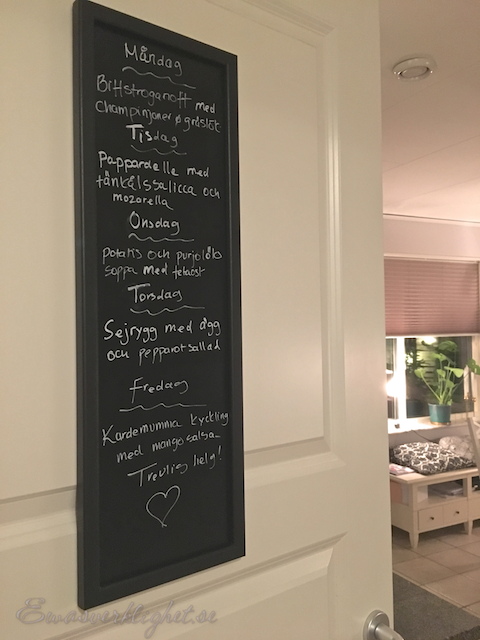 Måndag
Biffstroganoff med
champinjoner & gräslök
Tisdag
Pappardelle med
fänkålssalicca och
mozarella
Onsdag
potatis och purjolök
soppa med fetaost
Torsdag
Sejrygg med ägg
och pepparotsallad
Fredag
Kardemumma kyckling
med mangosalsa
Trevlig helg!
Ewasverklighet.se